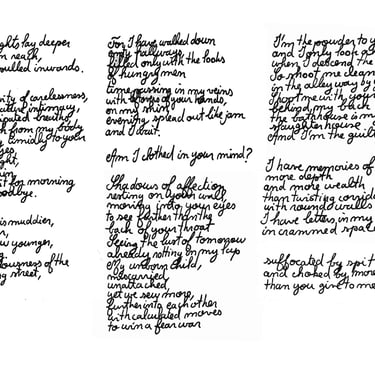 ghts lay deeper
n neath,
pulled inwards.
rity of carelessness,
intimacy,
breaths,
from my body
timidly to your
yes
ght,
t for morning
oodbye.
is muddier,
w younger,
ousness of the
ng street,
For I have walked down
many hallways,
filled only with the looks
of hungry men
time pissing in my veins
with of your hands,
on my shirt
evening spread out like jam
and I bruit.
Am I clothed in your mind?
Shadows of affection
resting on your wall
moving into your eyes
to see further than the
back of your throat
Seeing the lust of tomorrow
already rotting on my lap
My unborn child,
miscarried,
unattached,
yet we sew more,
further into each other
with calculated moves
to win a fear war
I'm the powder to y
and I only look go
when I descend the
To shoot me clean
in the alley way by
me with your
behind my back
the bathhouse is m
slaughterhouse
And I'm the guil
I have memories of
more depth
and more wealth
than twisting corrido
with round walls
I have letters in my
in crammed spac
suffocated by spit
and choked by more
than you give to me